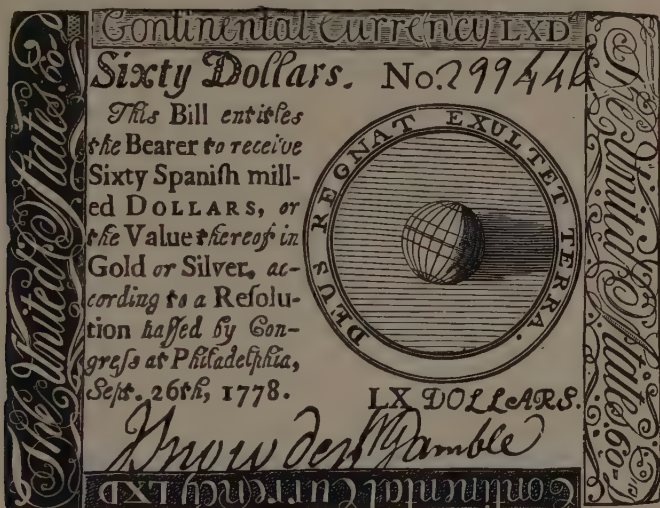 Continental Currency LXD
Sixty Dollars. No. 299446
This Bill entitles
the Bearer to receive
Sixty Spaniſh mill-
ed DOLLARS, or
the Value thereof in
Gold or Silver, ac-
cording to a Reſolu-
tion paſſed by Con-
greſs at Philadelphia,
Sept. 26th, 1778.
DEUS REGNAT EXULTET TERRA.
LX DOLLARS.
Snowden Gamble
The United States. 60
The United States. 60
Continental Currency LXD